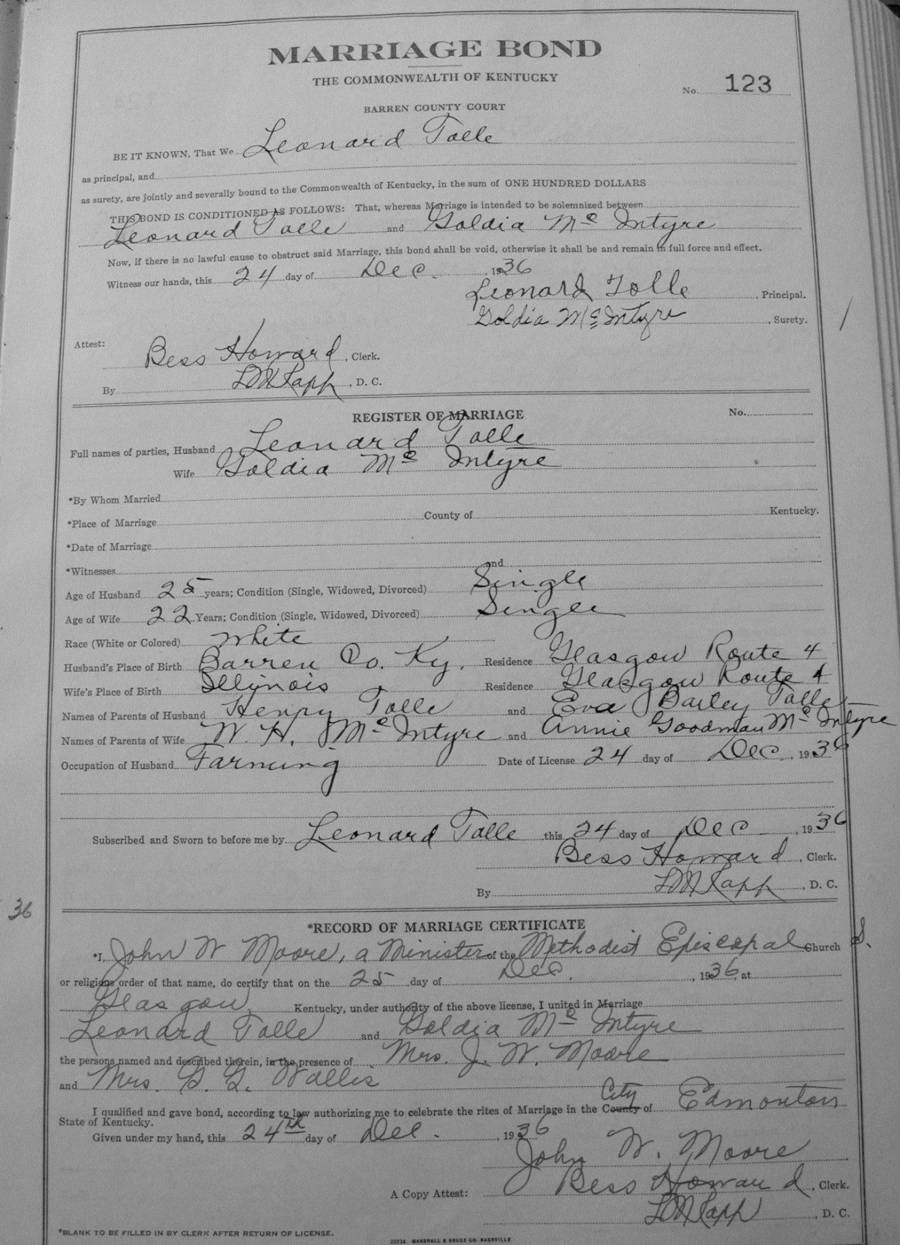 MARRIAGE BOND
THE COMMONWEALTH OF KENTUCKY
No. 123
BARREN COUNTY COURT
BE IT KNOWN, That We Leonard Tolle
as principal, and
as surety, are jointly and severally bound to the Commonwealth of Kentucky, in the sum of ONE HUNDRED DOLLARS
THIS BOND IS CONDITIONED AS FOLLOWS: That, whereas Marriage is intended to be solemnized between
Leonard Tolle and Goldia Mc Intyre
Now, if there is no lawful cause to obstruct said Marriage, this bond shall be void, otherwise it shall be and remain in full force and effect.
Witness our hands, this 24 day of Dec. , 1936
Leonard Tolle , Principal.
Goldia Mc Intyre , Surety.
Attest:
Bess Howard , Clerk.
By , D. C.
REGISTER OF MARRIAGE No.
Full names of parties, Husband Leonard Tolle
Wife Goldia Mc Intyre
*By Whom Married
*Place of Marriage County of Kentucky.
*Date of Marriage
*Witnesses and
Age of Husband 25 years; Condition (Single, Widowed, Divorced) Single
Age of Wife 22 Years; Condition (Single, Widowed, Divorced) Single
Race (White or Colored) White
Husband's Place of Birth Barren Co. Ky. Residence Glasgow Route 4
Wife's Place of Birth Illinois Residence Glasgow Route 4
Names of Parents of Husband Henry Tolle and Eva Bailey Tolle
Names of Parents of Wife W. H. Mc Intyre and Annie Goodman Mc Intyre
Occupation of Husband Farming Date of License 24 day of Dec , 1936
Subscribed and Sworn to before me by Leonard Tolle this 24 day of Dec , 1936
Bess Howard , Clerk.
By , D. C.
36
*RECORD OF MARRIAGE CERTIFICATE
*I, John W Moore, a Minister of the Methodist Episcopal Church S.
or religious order of that name, do certify that on the 25 day of Dec. , 1936, at
Glasgow, Kentucky, under authority of the above license, I united in Marriage
Leonard Tolle and Goldia Mc Intyre
the persons named and described therein, in the presence of Mrs. J. W. Moore
and Mrs. Wallis
I qualified and gave bond, according to law authorizing me to celebrate the rites of Marriage in the City County of Edmonton
State of Kentucky.
Given under my hand, this 24th day of Dec. , 1936
John W. Moore
A Copy Attest: Bess Howard , Clerk.
, D. C.
*BLANK TO BE FILLED IN BY CLERK AFTER RETURN OF LICENSE.
MARSHALL & BRUCE CO. NASHVILLE